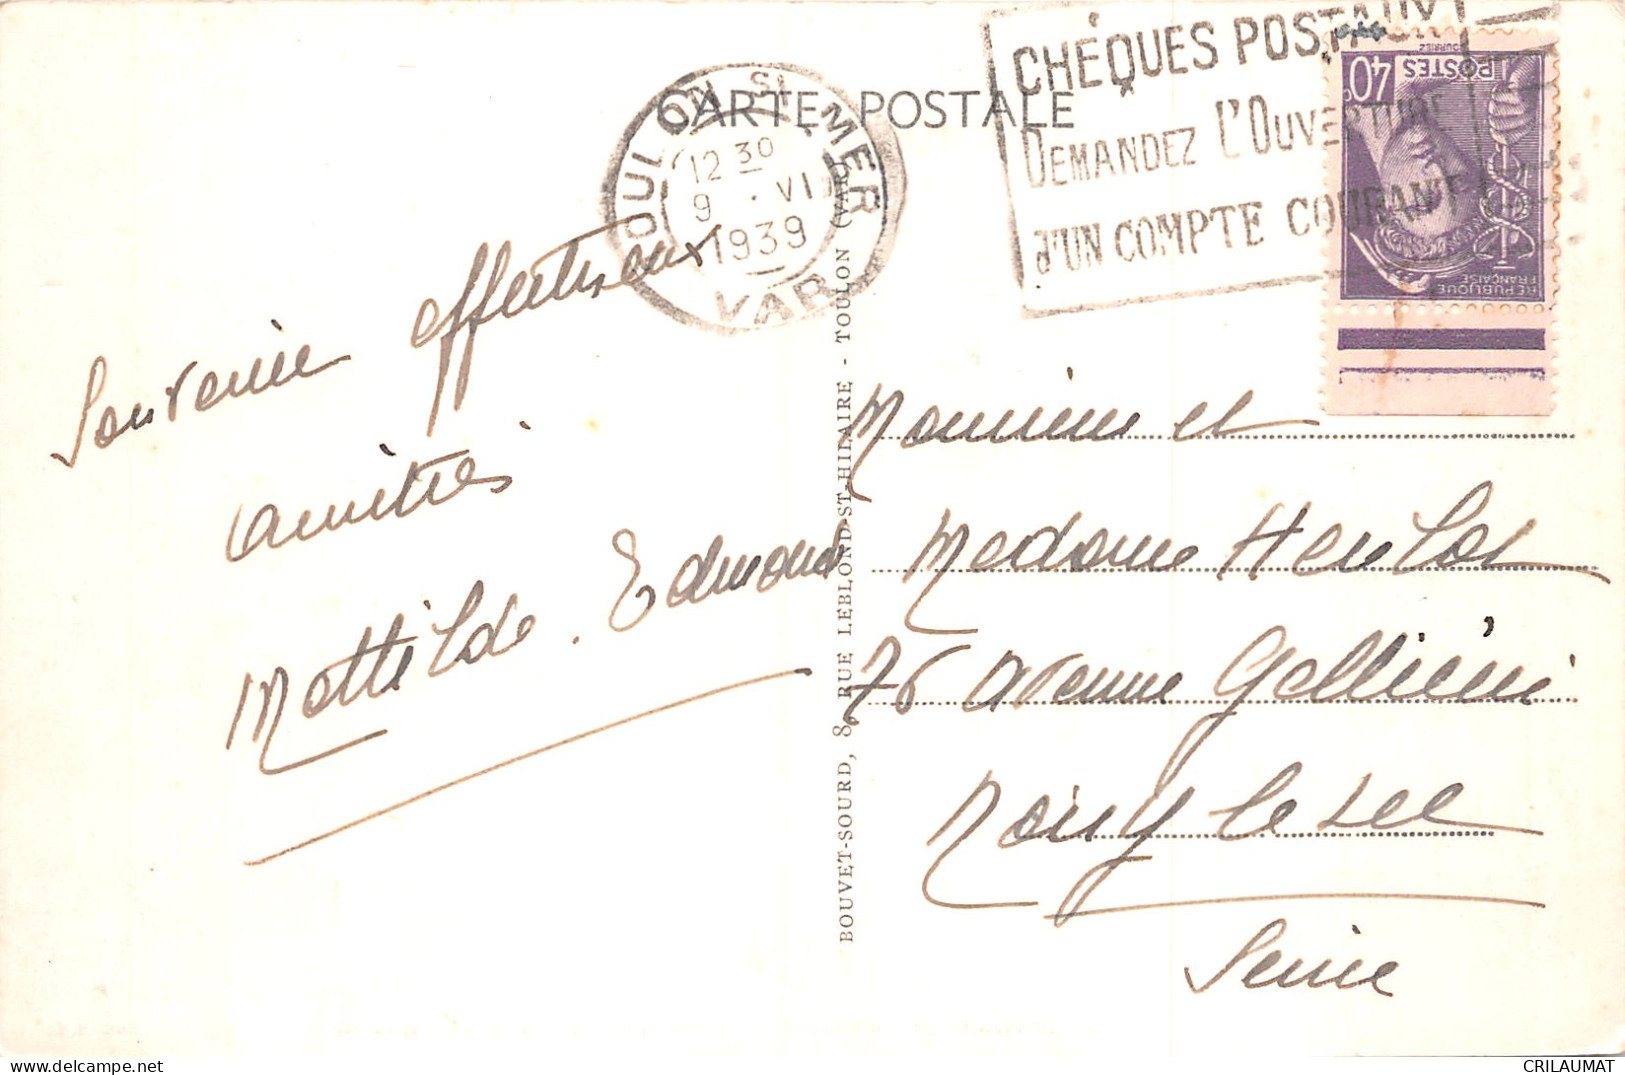 CARTE POSTALE
TOULON SR MER
12 30
9 · VI
1939
VAR
CHÈQUES POSTAUX
DEMANDEZ L'OUVERTURE
D'UN COMPTE COURANT
40c
POSTES
RÉPUBLIQUE
FRANÇAISE
Souvenir affectueux
amitiés
Mathilde. Edmond
BOUVET-SOURD, 8, RUE LEBLOND-ST-HILAIRE - TOULON (VAR)
Monsieur et
Madame
76 avenue Galliéni
Noisy le Sec
Seine
CRILAUMAT